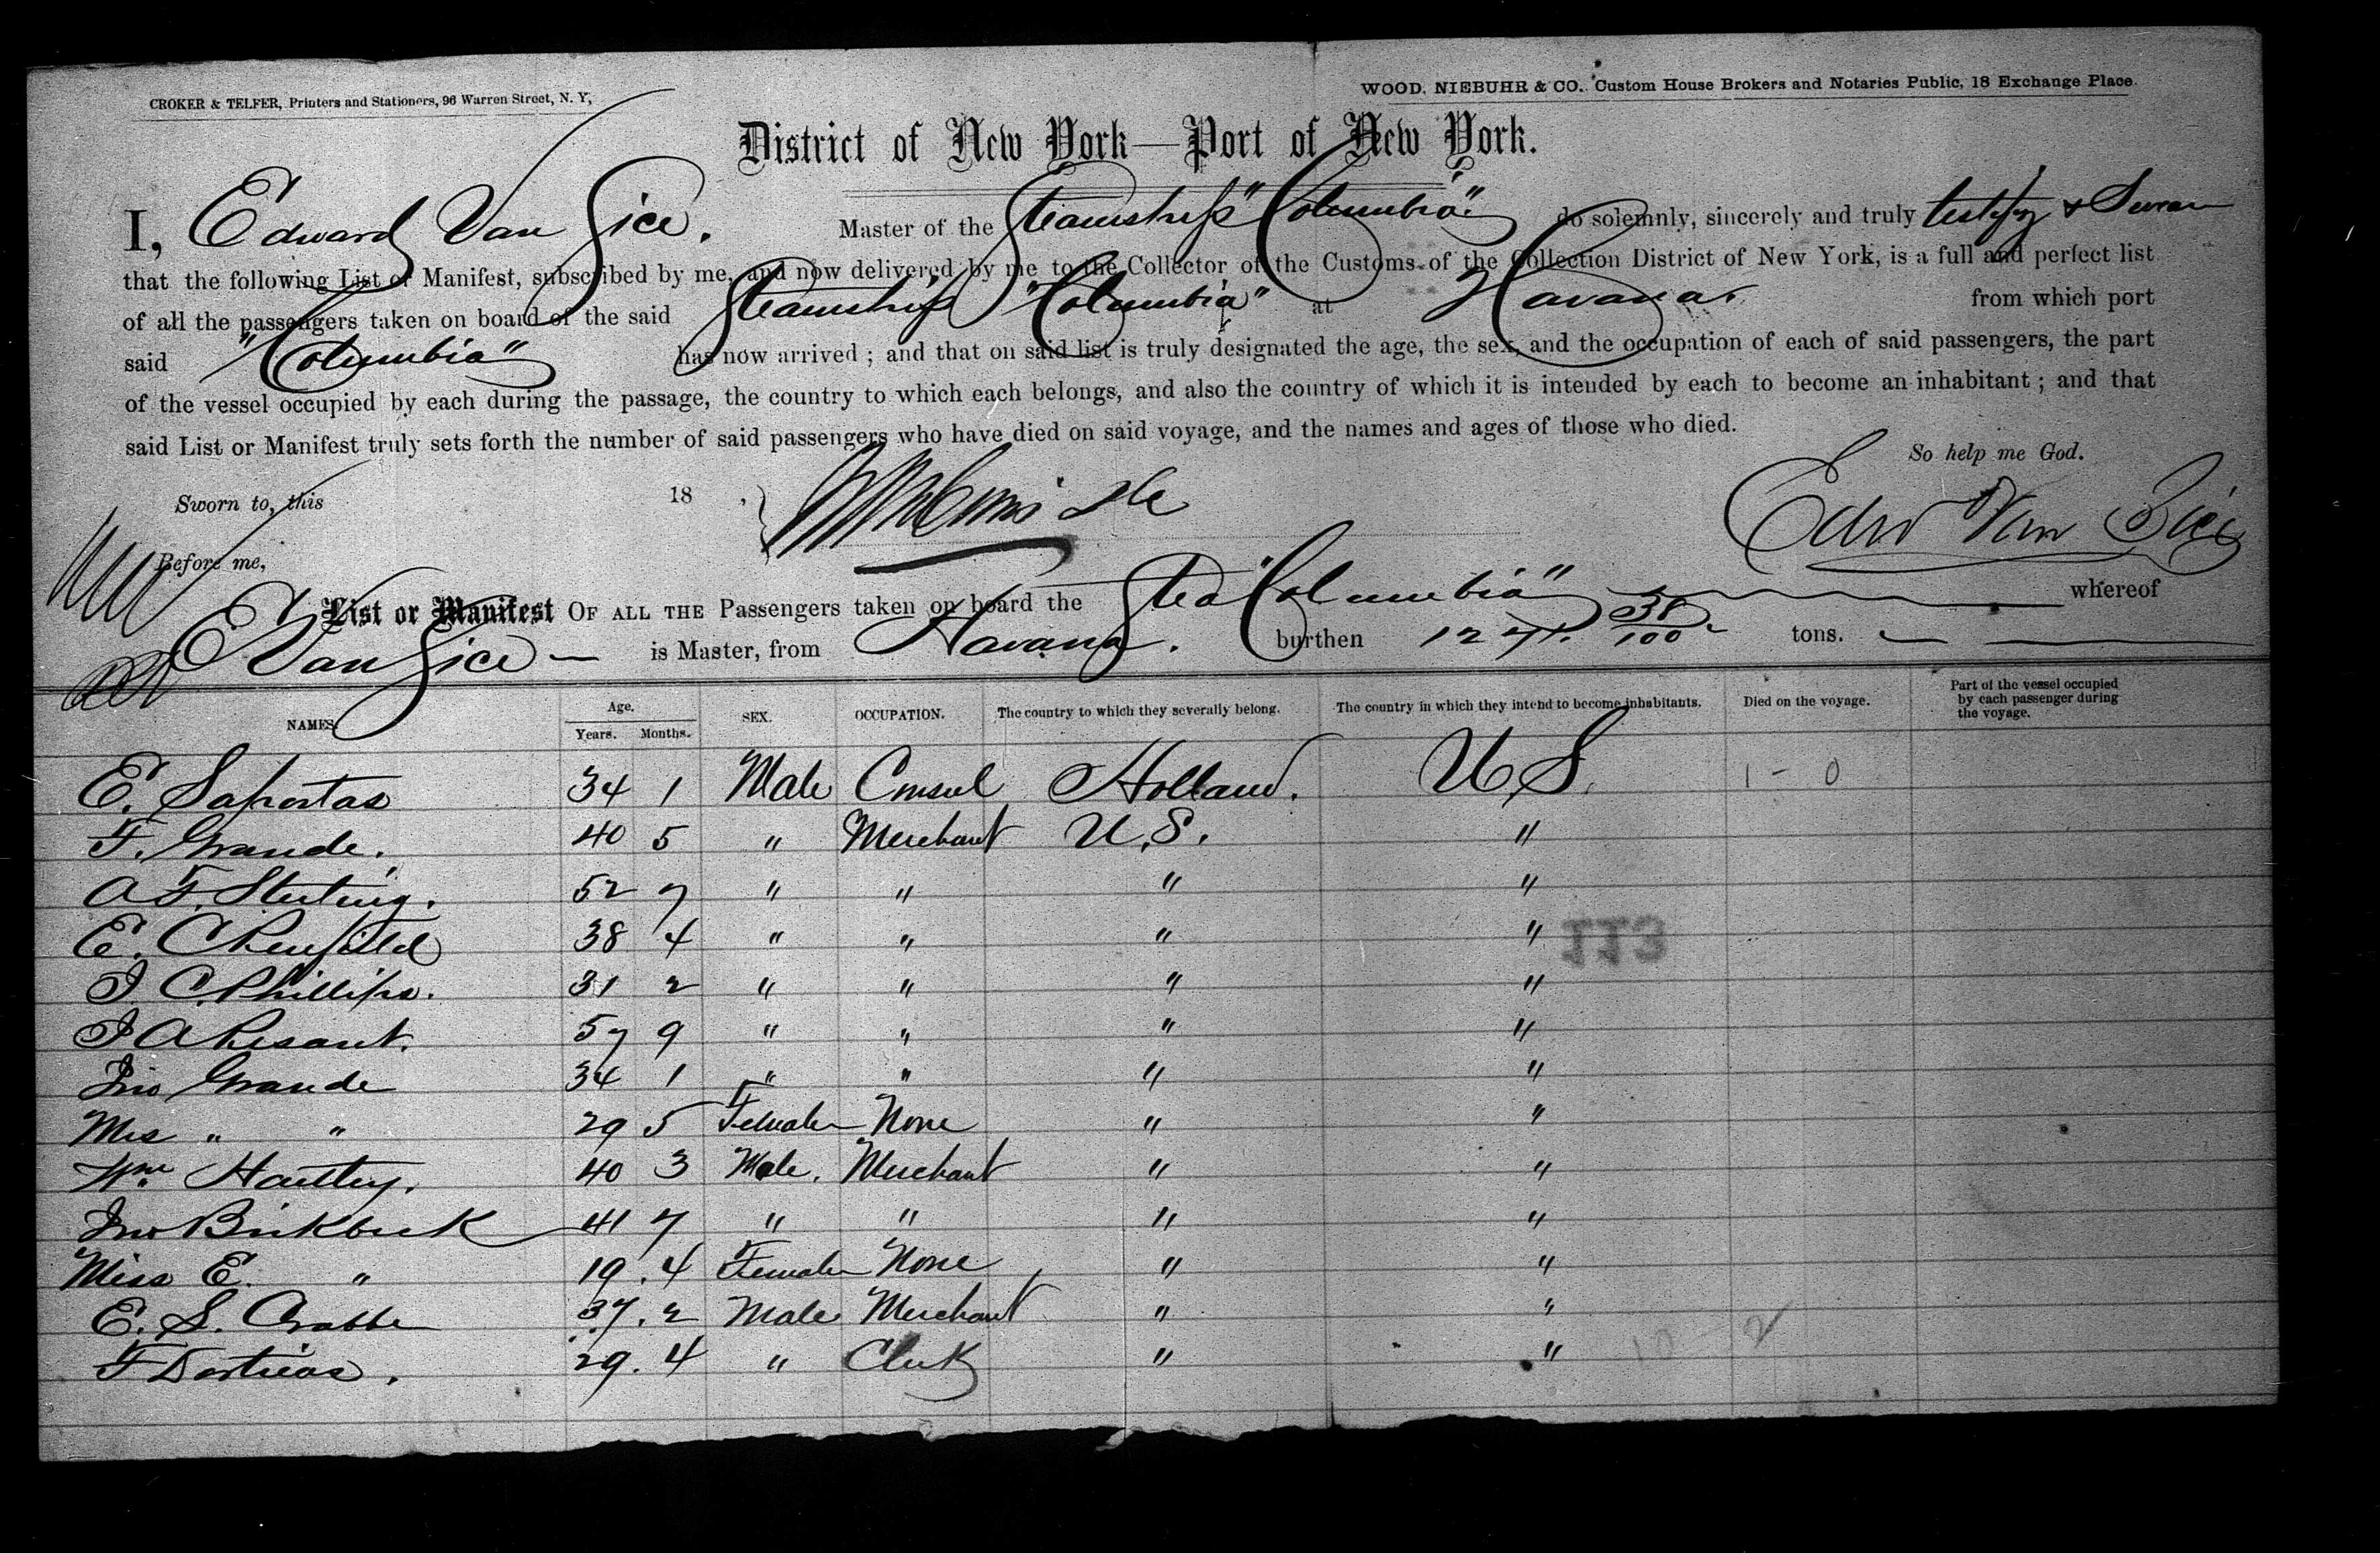 CROKER & TELFER, Printers and Stationers, 96 Warren Street, N. Y,
WOOD, NIEBUHR & CO. Custom House Brokers and Notaries Public, 18 Exchange Place.
District of New York—Port of New York.
I, Edward Van Sice. Master of the Steamship "Columbia" do solemnly, sincerely and truly testify & Swear
that the following List or Manifest, subscribed by me, and now delivered by me to the Collector of the Customs of the Collection District of New York, is a full and perfect list
of all the passengers taken on board of the said Steamship "Columbia" at Havana. from which port
said "Columbia" has now arrived ; and that on said list is truly designated the age, the sex, and the occupation of each of said passengers, the part
of the vessel occupied by each during the passage, the country to which each belongs, and also the country of which it is intended by each to become an inhabitant ; and that
said List or Manifest truly sets forth the number of said passengers who have died on said voyage, and the names and ages of those who died.
So help me God.
Sworn to, this 18 ,
Edw Van Sice
Before me,
List or Manifest OF ALL THE Passengers taken on board the "Columbia" whereof
E Van Sice is Master, from Havana. burthen 38/100 tons.
NAMES. Age. Years. Months. SEX. OCCUPATION. The country to which they severally belong. The country in which they intend to become inhabitants. Died on the voyage. Part of the vessel occupied by each passenger during the voyage.
E. Saportas 34 1 Male Consul Holland. U.S. 1 - 0
F. Grande. 40 5 " Merchant U.S. "
A F. 52 7 " " " "
E. 38 4 " " " " 113
J. C. Phillips. 31 2 " " " "
J A 57 9 " " " "
Jno Grande 34 1 " " " "
Mrs " " 29 5 Female None " "
Wm Hartley. 40 3 Male. Merchant " "
Jno Birkbeck 41 7 " " " "
Miss E. " 19. 4 Female None " "
E. S. Crabbe 37. 2 Male Merchant " "
F 29. 4 " Clerk " "